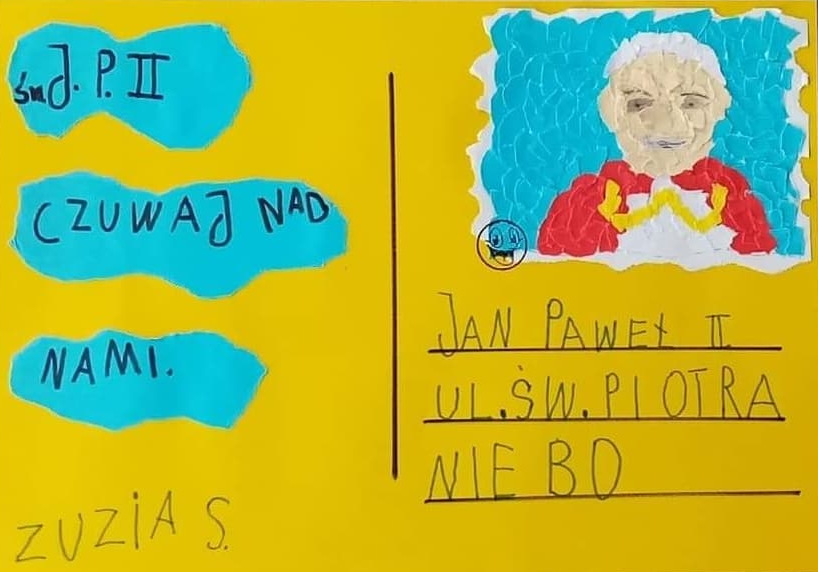 św J. P. II
CZUWAJ NAD
NAMI.
ZUZIA S.
JAN PAWEŁ II
UL. ŚW. PIOTRA
NIEBO